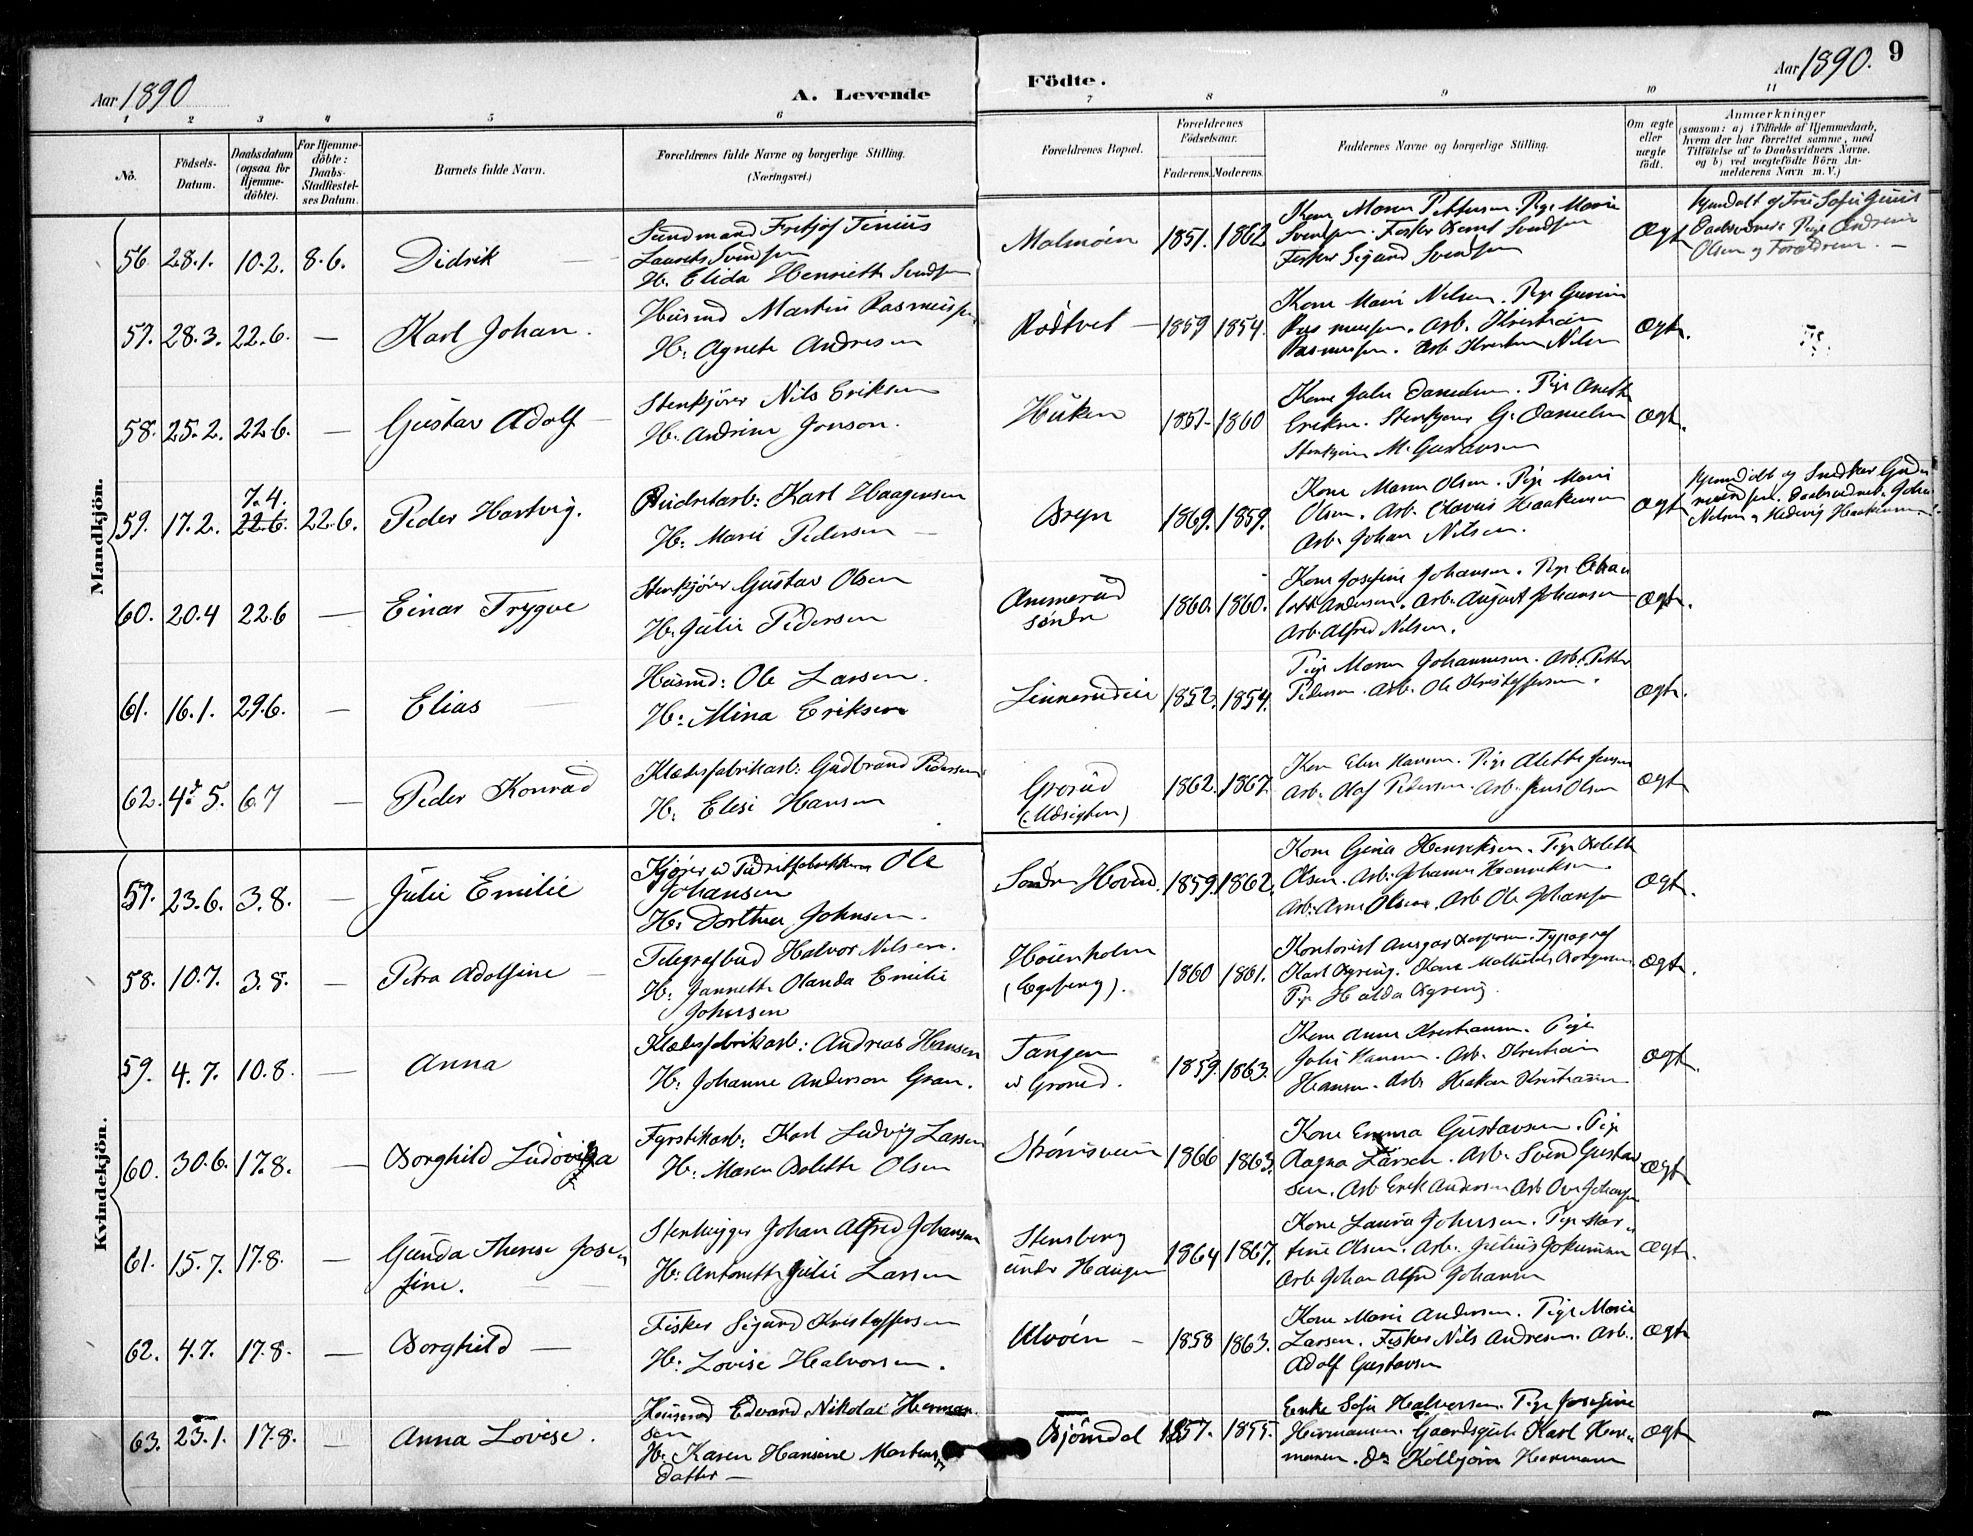 Aar 1890
A. Levende
Födte.
Aar 1890. 9
1 2 3 4 5 6 7 8 9 10 11
No.
Födsels-
Datum.
Daabsdatum
(ogsaa for
Hjemme-
döbte).
For Hjemme-
döbte:
Daabs-
Stadfæstel-
ses Datum.
Barnets fulde Navn.
Forældrenes fulde Navne og borgerlige Stilling.
(Næringsvei.)
Forældrenes Bopæl.
Forældrenes
Födselsaar.
Faderens. Moderens.
Faddernes Navne og borgerlige Stilling.
Om ægte
eller
uægte
födt.
Anmærkninger
(saasom: a) i Tilfælde af Hjemmedaab,
hvem der har forrettet samme, med
Tilföielse af to Daabsvidners Navne.
og b) ved uægtefödte Börn An-
melderens Navn m. V.)
Mandkjön.
56. 28.1. 10.2. 8.6. Didrik
Sundmand Fritjof Tinius
Laurits Svendsen
H: Elida Henriette Svendsen
Malmöen 1851. 1862
Kone Maren Pettersen. Pige Marie
Svendsen. Fisker Bernt Svendsen
Fisker Sigurd Svendsen
Ægte
Hjemdøbt af Fru Sofie
Daabsvidner: Pige Andrine
Olsen og Forældrene. —
57. 28.3. 22.6. — Karl Johan.
Husmd Martin Rasmussen
H: Agnete Andresen
Rödtvet — 1859 1854.
Kone Marie Nilsen. Pige
Rasmussen. Arb. Kristian
Rasmussen. Arb Kristian Nilsen
Ægte.
58. 25.2. 22.6. — Gustav Adolf —
Stenkjörer Nils Eriksen
H: Andrine Jonson.
Huken 1857 1860
Kone Julie Danielsen. Pige Anette
Eriksen. Stenkjörer G. Danielsen
Stenkjörer M. Gustavsen
Ægte.
59. 17.2. 7.4. 22.6. 22.6. Peder Hartvig.
Karl Haagensen
H: Marie Pedersen —
Bryn 1869. 1859.
Kone Maren Olsen. Pige Marie
Olsen. Arb. Olavus Haakensen
Arb. Johan Nilsen.
Ægte
Hjemdøbt af Snedker
Daabsvidner: Johan
Nilsen og Hedevig Haakensen
60. 20.4 22.6 — Einar Trygve
Stenkjörer Gustav Olsen
H: Julie Pedersen
Ammerud
söndre
1860. 1860.
Kone Josefine Johansen. Pige
Andersen. Arb. August Johansen
Arb. Alfred Nilsen.
Ægte.
61. 16.1. 29.6. — Elias —
Husmd: Ole Larsen.
H: Mina Eriksen
Linnerudeie 1852. 1854.
Pige Maren Johannesen. Arb. Petter
Pedersen. Arb. Ole Kristoffersen.
Ægte.
62. 4. 5. 6.7 — Peder Konrad
Klædesfabrikarb: Gudbrand Pedersen
H: Elise Hansen
Grorud
(Udsigten)
1862. 1867.
Kone Elen Hansen. Pige Alette Jensen
Arb. Olaf Pedersen. Arb. Jens Olsen
Ægte
Kvindekjön.
57. 23.6. 3.8. — Julie Emilie
Kjörer v Ole
Johansen
H: Dorthea Johnsen.
Søndre Hovind. 1859. 1862.
Kone Gina Henriksen. Pige Bolette
Olsen. Arb: Johannes Henriksen.
Arb: Arne Olsen. Arb Ole Johansen
Ægte.
58. 10.7. 3.8. — Petra Adolfine —
Telegrafbud Halvor Nilsen.
H: Jannette Olanda Emilie
Johnsen
Höienholm
(Egeberg).
1860 1861.
Kontorist Ansgar. Typograf
Karl. Kone Mathilde
Pige Halda
Ægte.
59. 4.7. 10.8. — Anna
Klædesfabrikarb: Andreas Hansen
H: Johanne Anderson Gran.
Tangen
v Grorud.
1859. 1863.
Kone Anna Kristiansen. Pige
Julie Hansen. Arb. Kristian
Hansen. Arb. Haakon Kristiansen
Ægte.
60. 30.6. 17.8. — Borghild Ludovika
Fyrstikarb: Karl Ludvig Larsen
H: Maren Bolette Olsen
Strömsveien 1866 1863.
Kone Emma Gustavsen. Pige
Ragna Larsen. Arb. Svend Gustav
sen. Arb Erik Andersen Arb Ove Johansen
Ægte
61. 15.7. 17.8. — Gunda Therese Jose-
fine. —
Stenhugger Johan Alfred Johansen
H: Antonette Julie Larsen
Stensberg
under Haugen
1864 1867.
Kone Laura Johnsen. Pige Mar-
tine Olsen. Arb. Julius
Arb Johan Alfred Johansen
Ægte.
62. 4.7. 17.8. — Borghild —
Fisker Sigurd Kristoffersen
H: Lovise Halvorsen.
Ulvöen — 1858 1863.
Kone Marie Andersen. Pige Marie
Larsen. Fisker Nils Andresen. Arb.
Adolf Gustavsen
Ægte
63. 23.1. 17.8. — Anna Lovise.
Husmd Edvard Nikolai Herman-
sen
H: Karen Hansine Martens
datter —
Bjömdal 1857. 1855.
Enke Sofie Halvorsen. Pige Josefine
Hermansen. Gaardsgut Karl Her-
mansen. Do Kolbjörn Hermansen
Ægte